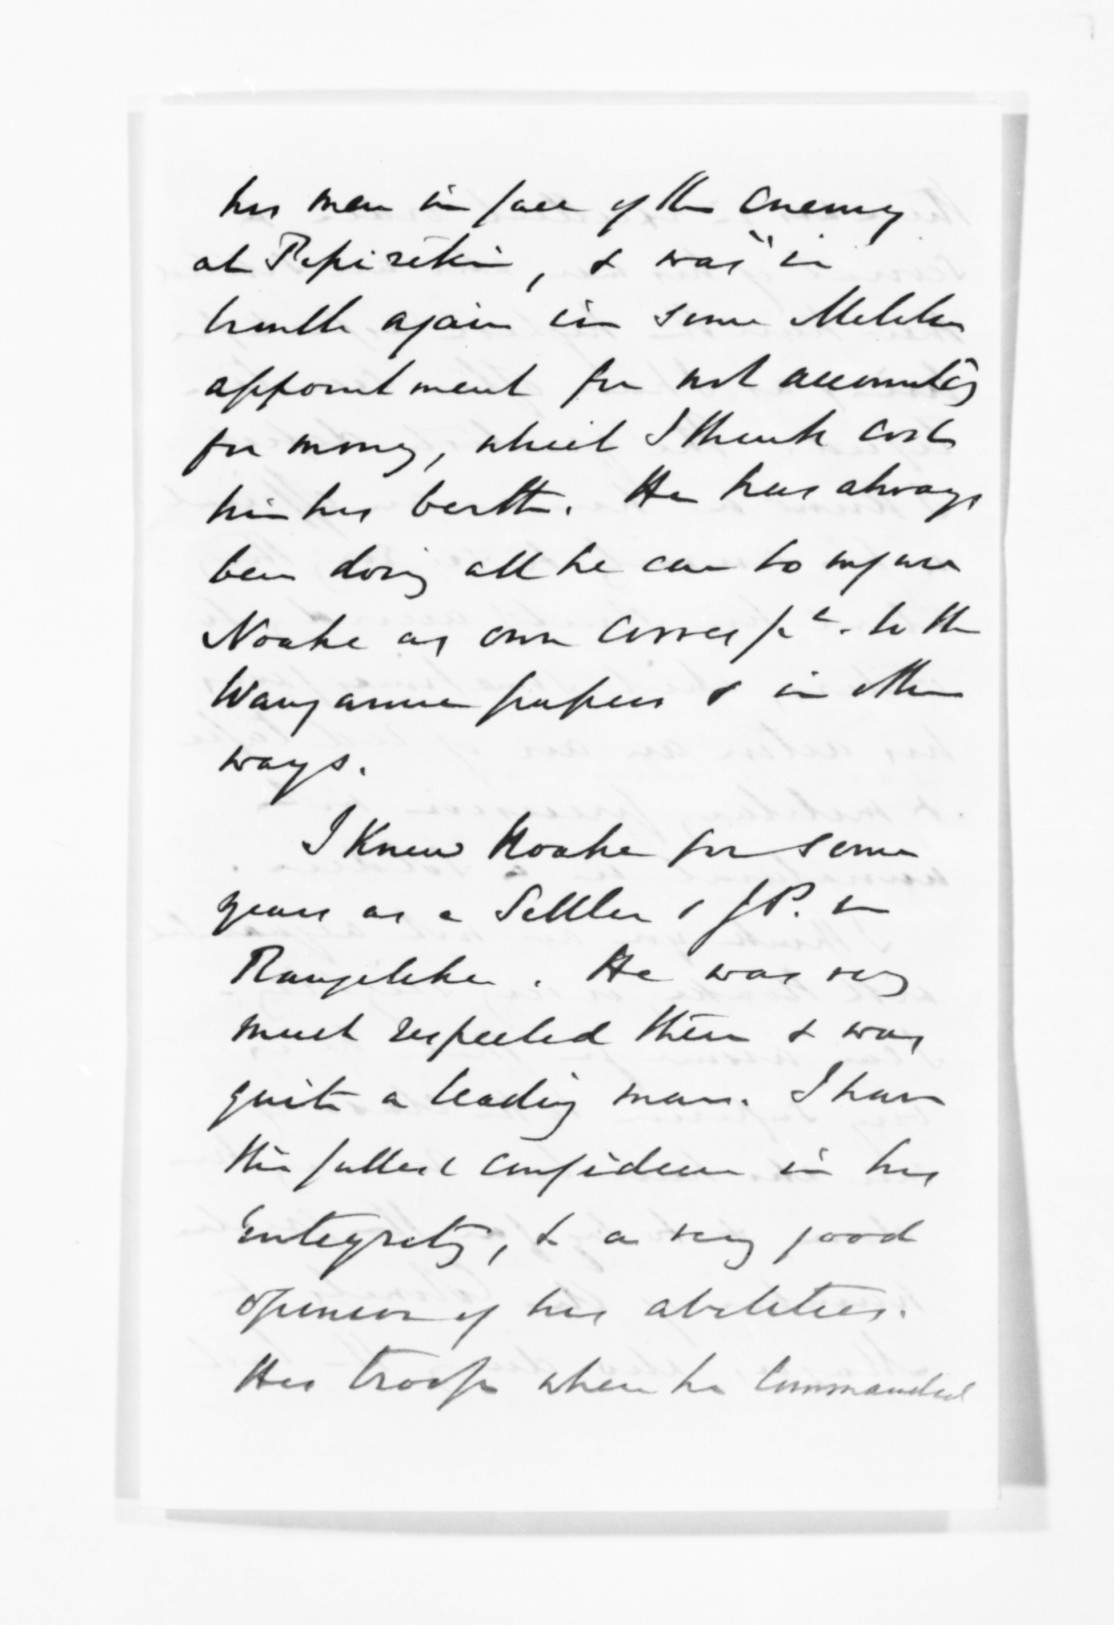 his men in face of the enemy
at Pipiriki, & was in
trouble again in some Militia
appointment for not accounting
for money, which I think cost
him his berth. He has always
been doing all he can to injure
Noake as own corresp^t. to the
Wanganui papers & in other
ways.
I knew Noake for some
years as a Settler & J.P. in
Rangitikei. He was very
much respected there & was
quite a leading man. I have
the fullest confidence in his
integrity, & a very good
opinion of his abilities.
His troop when he commanded